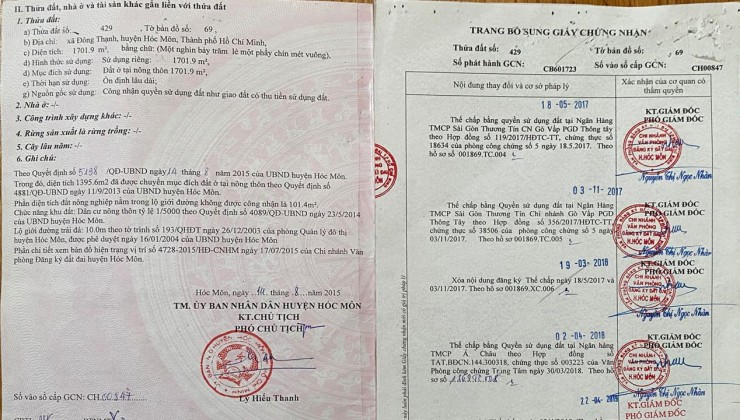 II. Thửa đất, nhà ở và tài sản khác gắn liền với thửa đất
1. Thửa đất:
a) Thửa đất số: 429 , Tờ bản đồ số: 69 ,
b) Địa chỉ: xã Đông Thạnh, huyện Hóc Môn, Thành phố Hồ Chí Minh,
c) Diện tích: 1701.9 m², bằng chữ: (Một nghìn bảy trăm lẻ một phẩy chín mét vuông),
d) Hình thức sử dụng: Sử dụng riêng: 1701.9 m²,
đ) Mục đích sử dụng: Đất ở tại nông thôn 1701.9 m²,
e) Thời hạn sử dụng: Ổn định lâu dài;
g) Nguồn gốc sử dụng: Công nhận quyền sử dụng đất như giao đất có thu tiền sử dụng đất.
2. Nhà ở: -/-
3. Công trình xây dựng khác: -/-
4. Rừng sản xuất là rừng trồng: -/-
5. Cây lâu năm: -/-
6. Ghi chú:
Theo Quyết định số 5198 /QĐ-UBND ngày 14 tháng 8 năm 2015 của UBND huyện Hóc Môn.
Trong đó, diện tích 1395.6m2 đã được chuyển mục đích đất ở tại nông thôn theo Quyết định số
4881/QĐ-UBND ngày 11/9/2013 của UBND huyện Hóc Môn.
Phần diện tích đất nông nghiệp nằm trong lộ giới đường không được công nhận là 101.4m².
Chức năng khu đất: Dân cư nông thôn tỷ lệ 1/5000 theo Quyết định số 4089/QĐ-UBND ngày 23/5/2014
của UBND huyện Hóc Môn.
Lộ giới đường trải đá: 10.0m theo tờ trình số 193/QHĐT ngày 26/12/2003 của phòng Quản lý đô thị
huyện Hóc Môn, được phê duyệt ngày 16/01/2004 của UBND huyện Hóc Môn
Phần chi tiết xem bản đồ hiện trạng vị trí số 4728-2015/HĐ-CNHM ngày 17/07/2015 của Chi nhánh Văn
phòng Đăng ký đất đai huyện Hóc Môn.
Hóc Môn, ngày 14 tháng 8 năm 2015
TM. ỦY BAN NHÂN DÂN HUYỆN HÓC MÔN
KT.CHỦ TỊCH
PHÓ CHỦ TỊCH
Lý Hiếu Thanh
Số vào sổ cấp GCN: CH.00847
TRANG BỔ SUNG GIẤY CHỨNG NHẬN
Thửa đất số: 429 Tờ bản đồ số: 69
Số phát hành GCN: CB601723 Số vào sổ cấp GCN: CH00847
Nội dung thay đổi và cơ sở pháp lý
Xác nhận của cơ quan có
thẩm quyền
18-05-2017
Thế chấp bằng quyền sử dụng đất tại Ngân Hàng
TMCP Sài Gòn Thương Tín CN Gò Vấp PGD Thông tây
theo Hợp đồng số 119/2017/HĐTC-TT, chứng thực số
18634 của phòng công chứng số 5 ngày 18.5.2017. Theo
hồ sơ số 001869.TC.004
KT.GIÁM ĐỐC
PHÓ GIÁM ĐỐC
CHI NHÁNH
VĂN PHÒNG
ĐĂNG KÝ ĐẤT ĐAI
H.HÓC MÔN
Nguyễn Thị Ngọc Nhâm
03-11-2017
Thế chấp bằng Quyền sử dụng đất tại Ngân Hàng
TMCP Sài Gòn Thương Tín Chi nhánh Gò Vấp PGD
Thông Tây theo Hợp đồng số 356/2017/HĐTC-TT,
chứng thực số 38506 của phòng công chứng số 5 ngày
03/11/2017. Theo hồ sơ 001869.TC.005
KT.GIÁM ĐỐC
PHÓ GIÁM ĐỐC
CHI NHÁNH
VĂN PHÒNG
ĐĂNG KÝ ĐẤT ĐAI
H.HÓC MÔN
Nguyễn Thị Ngọc Nhâm
19-03-2018
Xóa nội dung đăng ký Thế chấp ngày 18/5/2017 và
03/11/2017. Theo hồ sơ 001869.XC.006
KT.GIÁM ĐỐC
PHÓ GIÁM ĐỐC
Nguyễn Thị Ngọc Nhâm
02-04-2018
Thế chấp bằng Quyền sử dụng đất tại Ngân hàng
TMCP Á Châu theo Hợp đồng số
TAT.BĐCN.144.300318, chứng thực số 003223 của Văn
Phòng công chứng Trung Tâm ngày 30/03/2018. Theo hồ
sơ số
KT.GIÁM ĐỐC
PHÓ GIÁM ĐỐC
CHI NHÁNH
VĂN PHÒNG
ĐĂNG KÝ ĐẤT ĐAI
H.HÓC MÔN
Nguyễn Thị Ngọc Nhâm
22-04-
KT.GIÁM ĐỐC